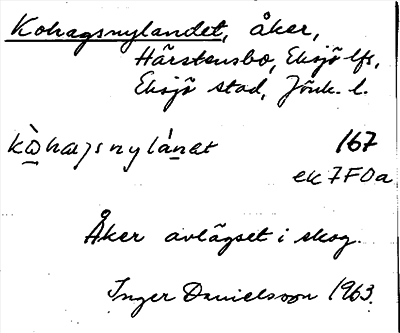 Kohagsnylandet, åker,
Hårstensbo, Eksjö lfs,
Eksjö stad, Jönk. l.
kὼhagsnylánat 167
ek 7F0a
Åker avlägset i skog.
Inger Danielsson 1963.